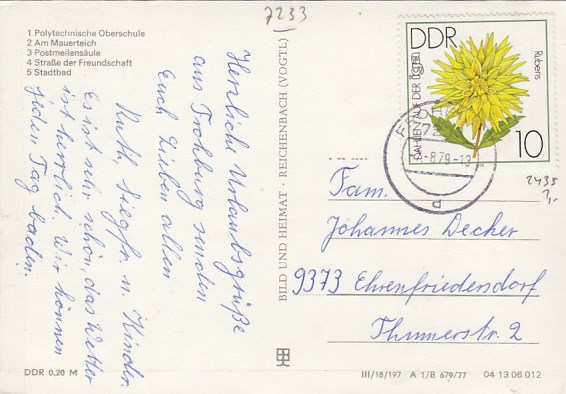 7233
1 Polytechnische Oberschule
2 Am Mauerteich
3 Postmeilensäule
4 Straße der Freundschaft
5 Stadtbad
Herzliche Urlaubsgrüße
aus Frohburg senden
Euch Lieben allen
Ruth, Siegfr. u. Kinder.
Es ist sehr schön, das Wetter
ist herrlich. Wir können
jeden Tag baden.
DDR 0,20 M
BILD UND HEIMAT · REICHENBACH (VOGTL)
DDR
DAHLIEN AUF DER
Rubens
10
-8.79-13
d
2435
1,-
Fam.
Johannes Decker
9373 Ehrenfriedersdorf
Thumerstr. 2
III/18/197 A 1/B 679/77 04 13 06 012